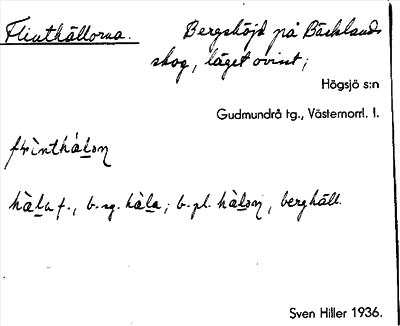 Flinthällorna.
Bergshöjd på Bäcklands
skog, läget ovisst;
Högsjö s:n
Gudmundrå tg., Västernorrl. l.
hàla f., b.sg. hàla; b.pl. hàlɷn̥, berghäll.
Sven Hiller 1936.